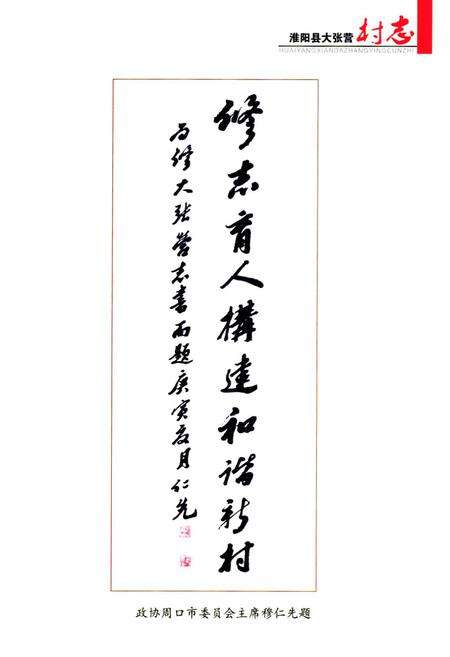 淮阳县大张营村志
HUAIYANGXIANDAZHANGYINGCUNZHI
修志育人構建和谐新村
为修大张营志書而题庚寅夏月仁先
政协周口市委员会主席穆仁先题